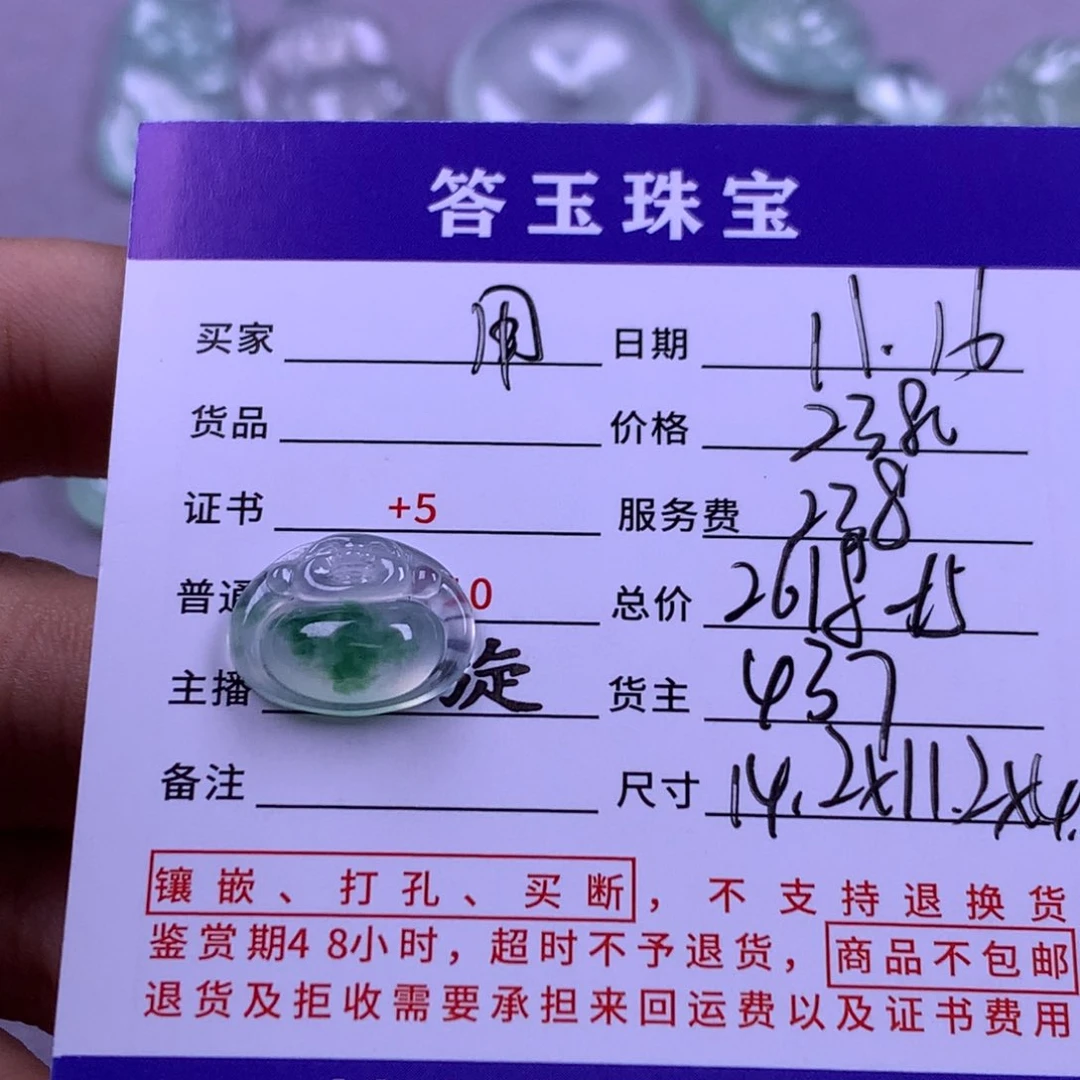 答玉珠宝
买家 日期 11.16
货品 价格 2380
证书 +5 服务费 238
普通 0 总价 2618+5
主播 旋 货主 437
备注 尺寸 14.2x11.2x4.
镶嵌、打孔、买断，不支持退换货
鉴赏期48小时，超时不予退货，商品不包邮
退货及拒收需要承担来回运费以及证书费用